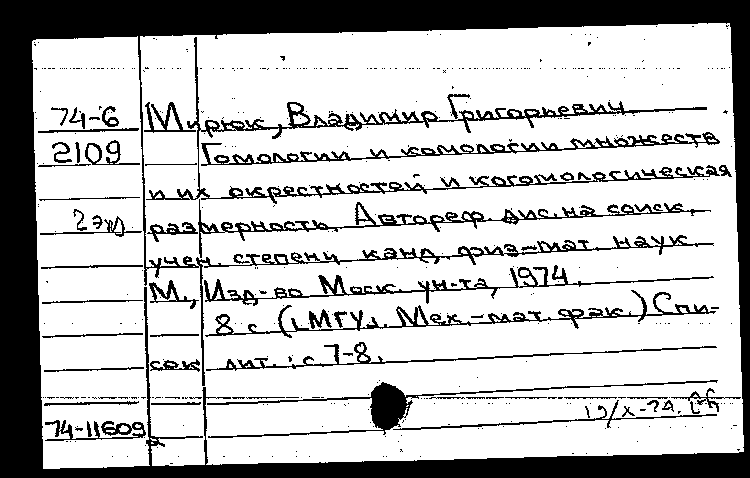 74-6 Мирюк, Владимир Григорьевич
2109 Гомологии и комологии множеств
и их окрестностей и когомологическая
2 экз размерность. Автореф. дис. на соиск.
учен. степени канд. физ-мат. наук.
М., Изд-во Моск. ун-та, 1974.
8 с. (МГУ. Мех.-мат. фак.) Спи-
сок лит.: с 7-8.
74-11609